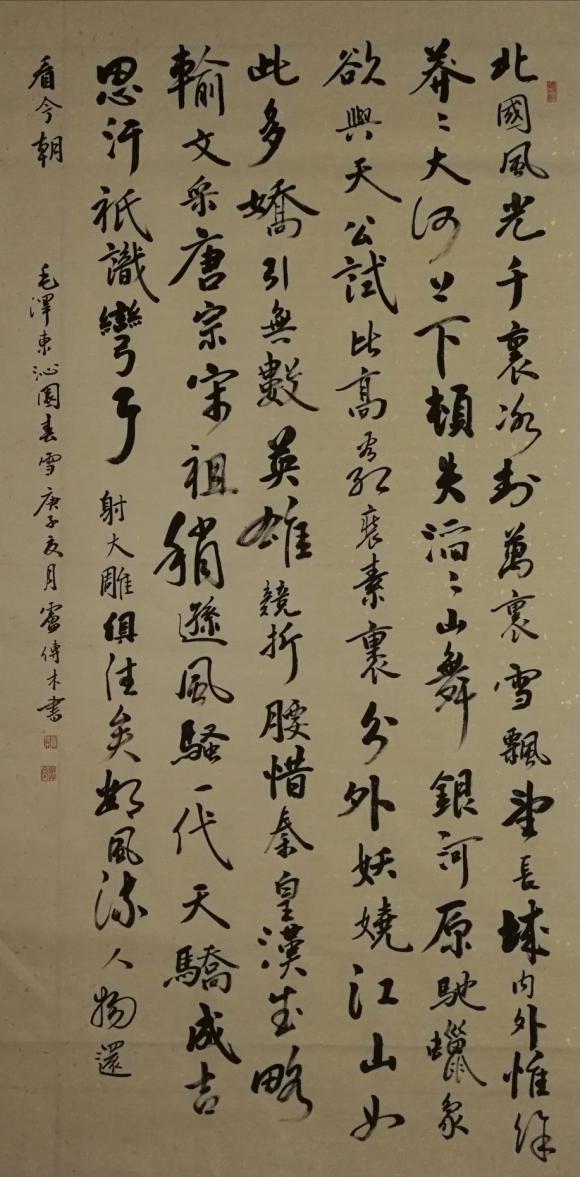 北國風光千裏冰封萬裏雪飄望長城内外惟餘
莽〻大河上下頓失滔〻山舞銀河原馳蠟象
欲與天公試比高看紅裝素裹分外妖嬈江山如
此多嬌引無數英雄競折腰惜秦皇漢武略
輸文采唐宗宋祖稍遜風騷一代天驕成吉
思汗祇識彎弓射大雕俱往矣數風流人物還
看今朝
毛澤東沁園春雪庚子夏月盧傳木書